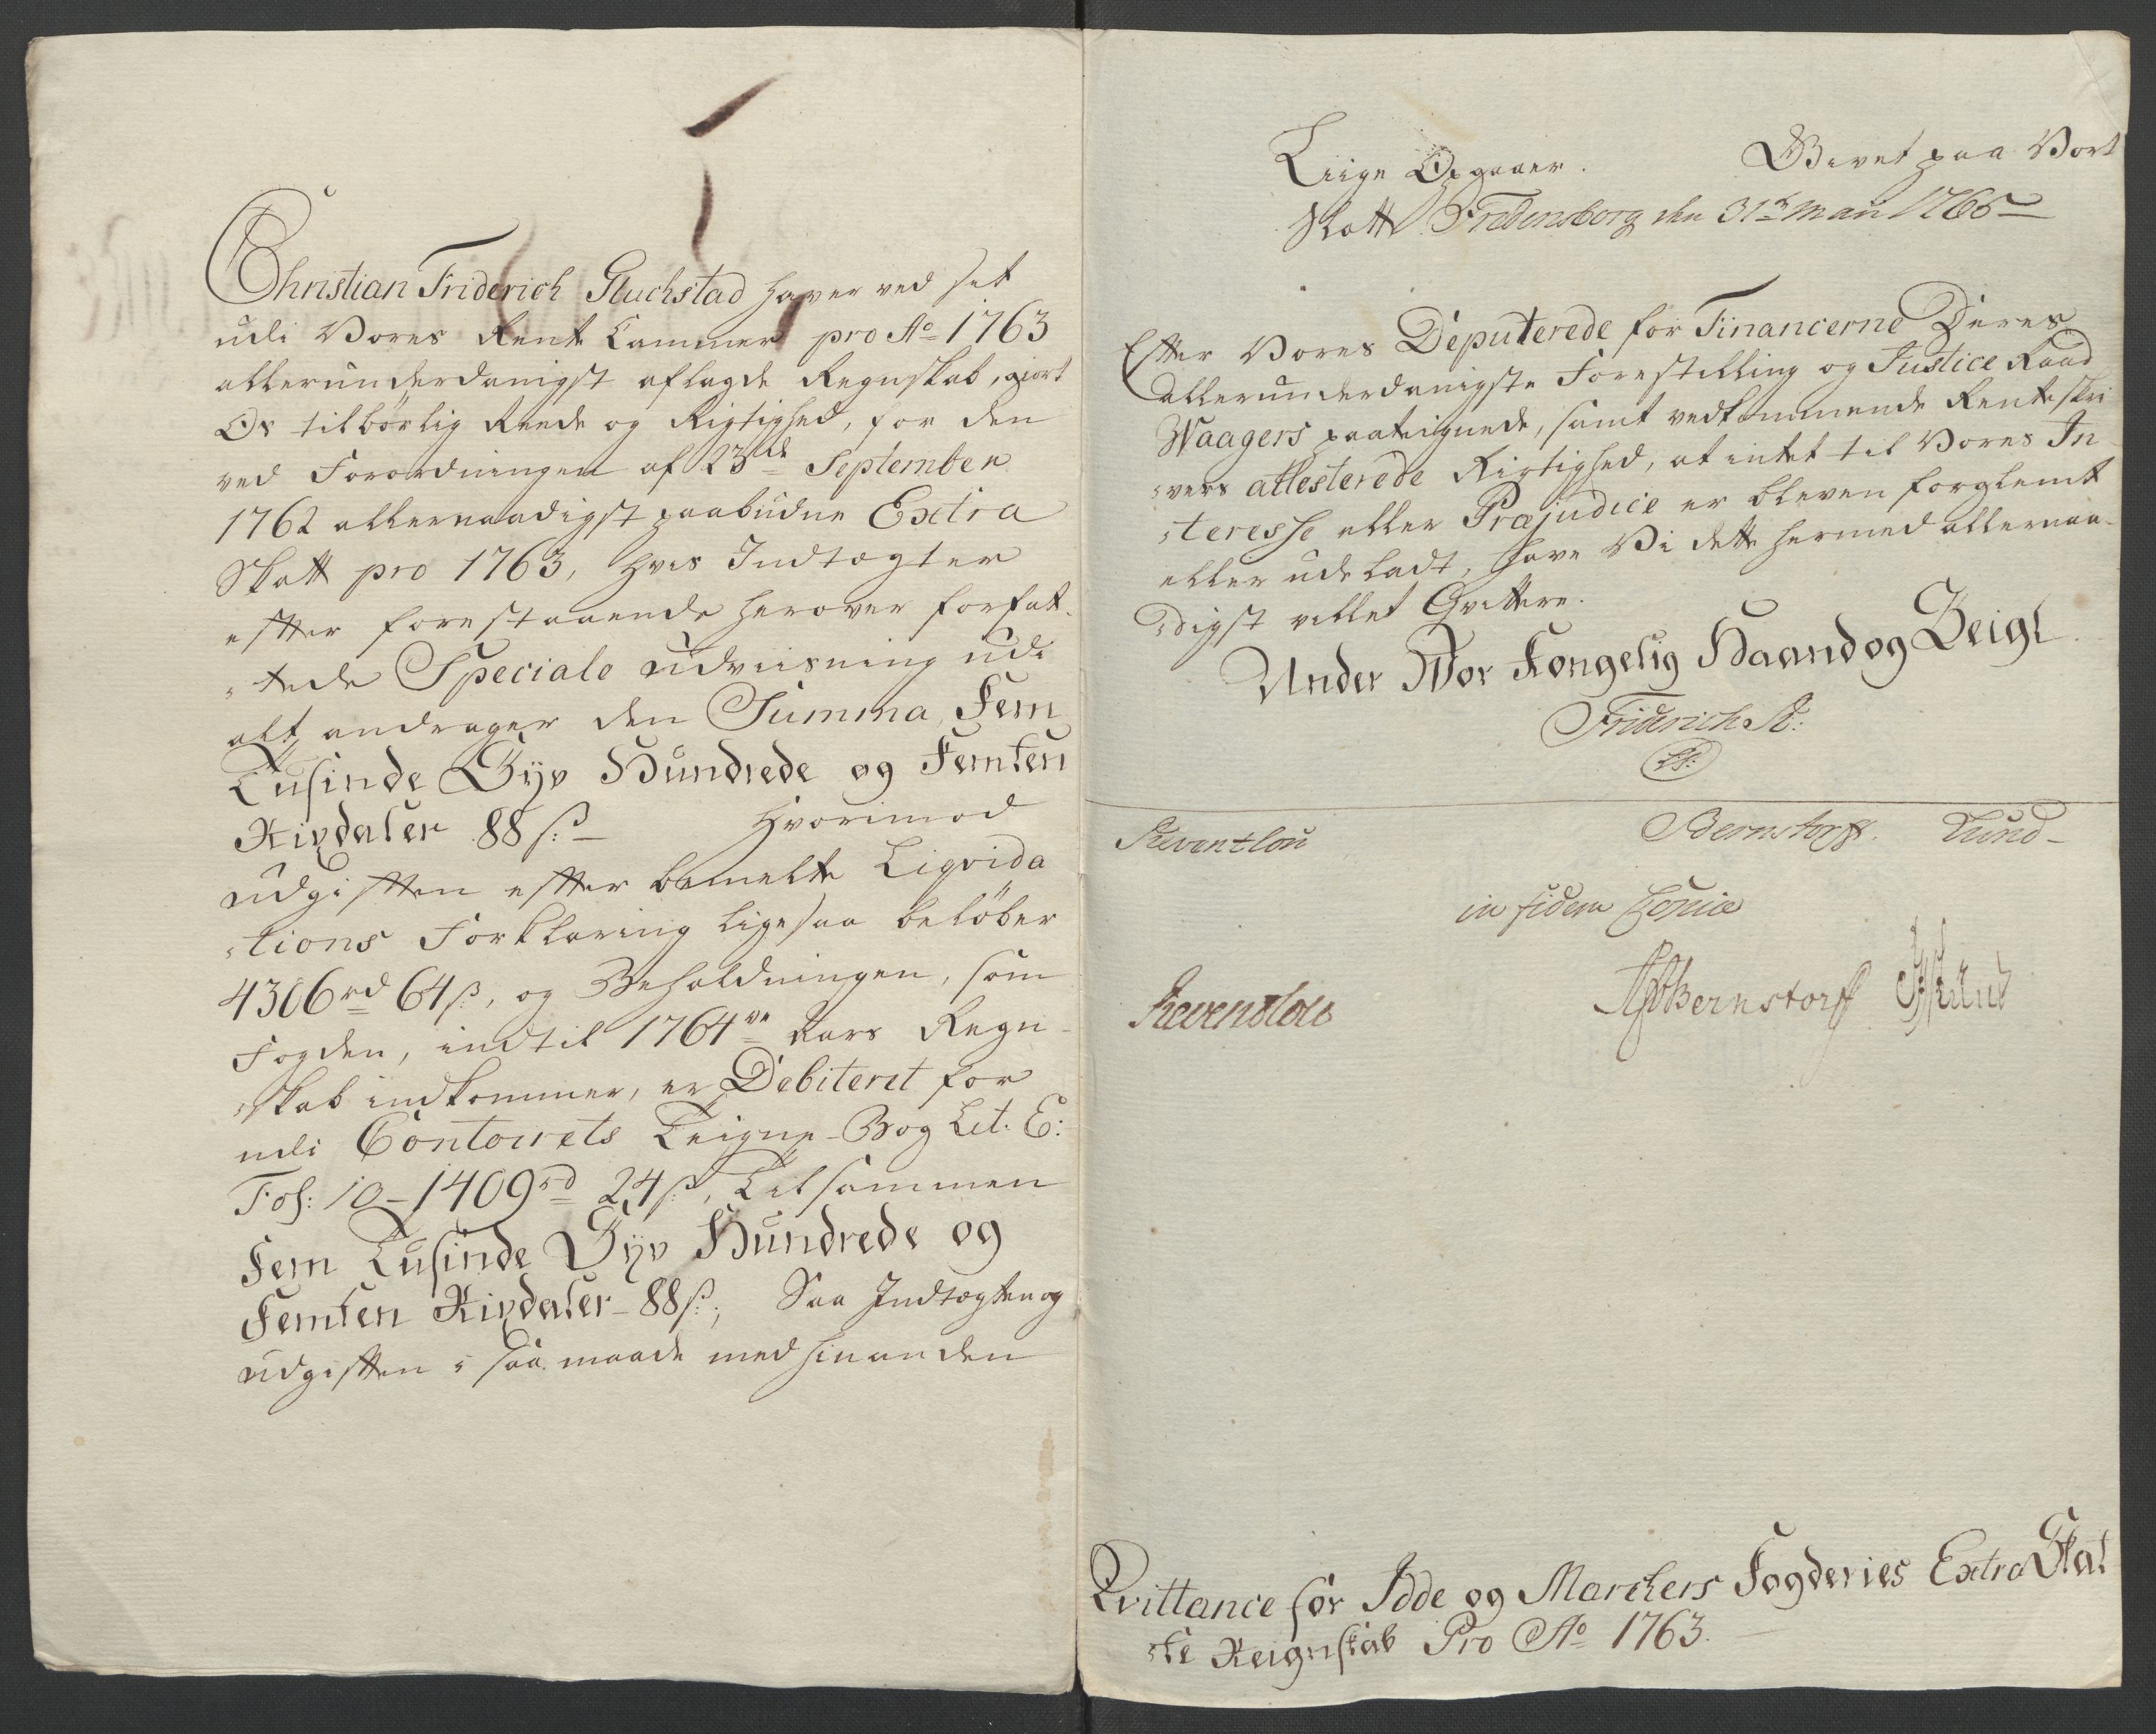 Christian Friderich Gluchstad haver ved set
udi Vores Rente Cammer pro Ao 1763
allerunderdanigst aflagde Regnskab, giort
Os tilbörlig Reede og Rigtighed, for den
ved Forordningen af 23de September
1762 allernaadigst paabudne Extra
Skatt pro 1763, hvis Indtægter
efter forestaaende herover forfat-
tede Speciale udviisning udi
alt andrager den Summa, Fem
Tusinde Syv Hundrede og Femten
Rixdaler 88 s. Hvorimod
udgiften efter bemelte Liqvida
tions Forklaring ligesaa belöber
4306 rd 64 s, og Beholdningen, som
Fogden, indtil 1764de Aars Regn-
skab indkommer, er Debiteret for
udi Contoirets Teigne-Bog Lit. E:
Fol: 10 - 1409 rd 24 s, Tilsammen
Fem Tusinde Syv Hundrede og
Femten Rixdaler 88 s; Saa Indtægten og
udgiften i saa maade med hinanden
Liige Opgaaer. Givet paa Vort
Slott Fredensborg den 31te Maii 1765
Efter Vores Deputerede for Financerne Deres
allerunderdanigste Forestilling og Justice Raad
Waagers paateignede, samt vedkommende Renteskri
vers attesterede Rigtighed, at intet til Vores In
teresse eller Præjudice er bleven forglemt
eller udeladt, have Vi dette hermed allernaa-
digst villet Qvittere.
Under Vor Kongelig Haand og Zeigl
Friderich R:
LS:
Reventlou Bernstorff. Lund
in fidem Copiæ
Reventlou Bernstorff Lund
Qvittance for Idde og Marchers Fogderies Extra Skat
te Reignskab Pro Ao 1763.